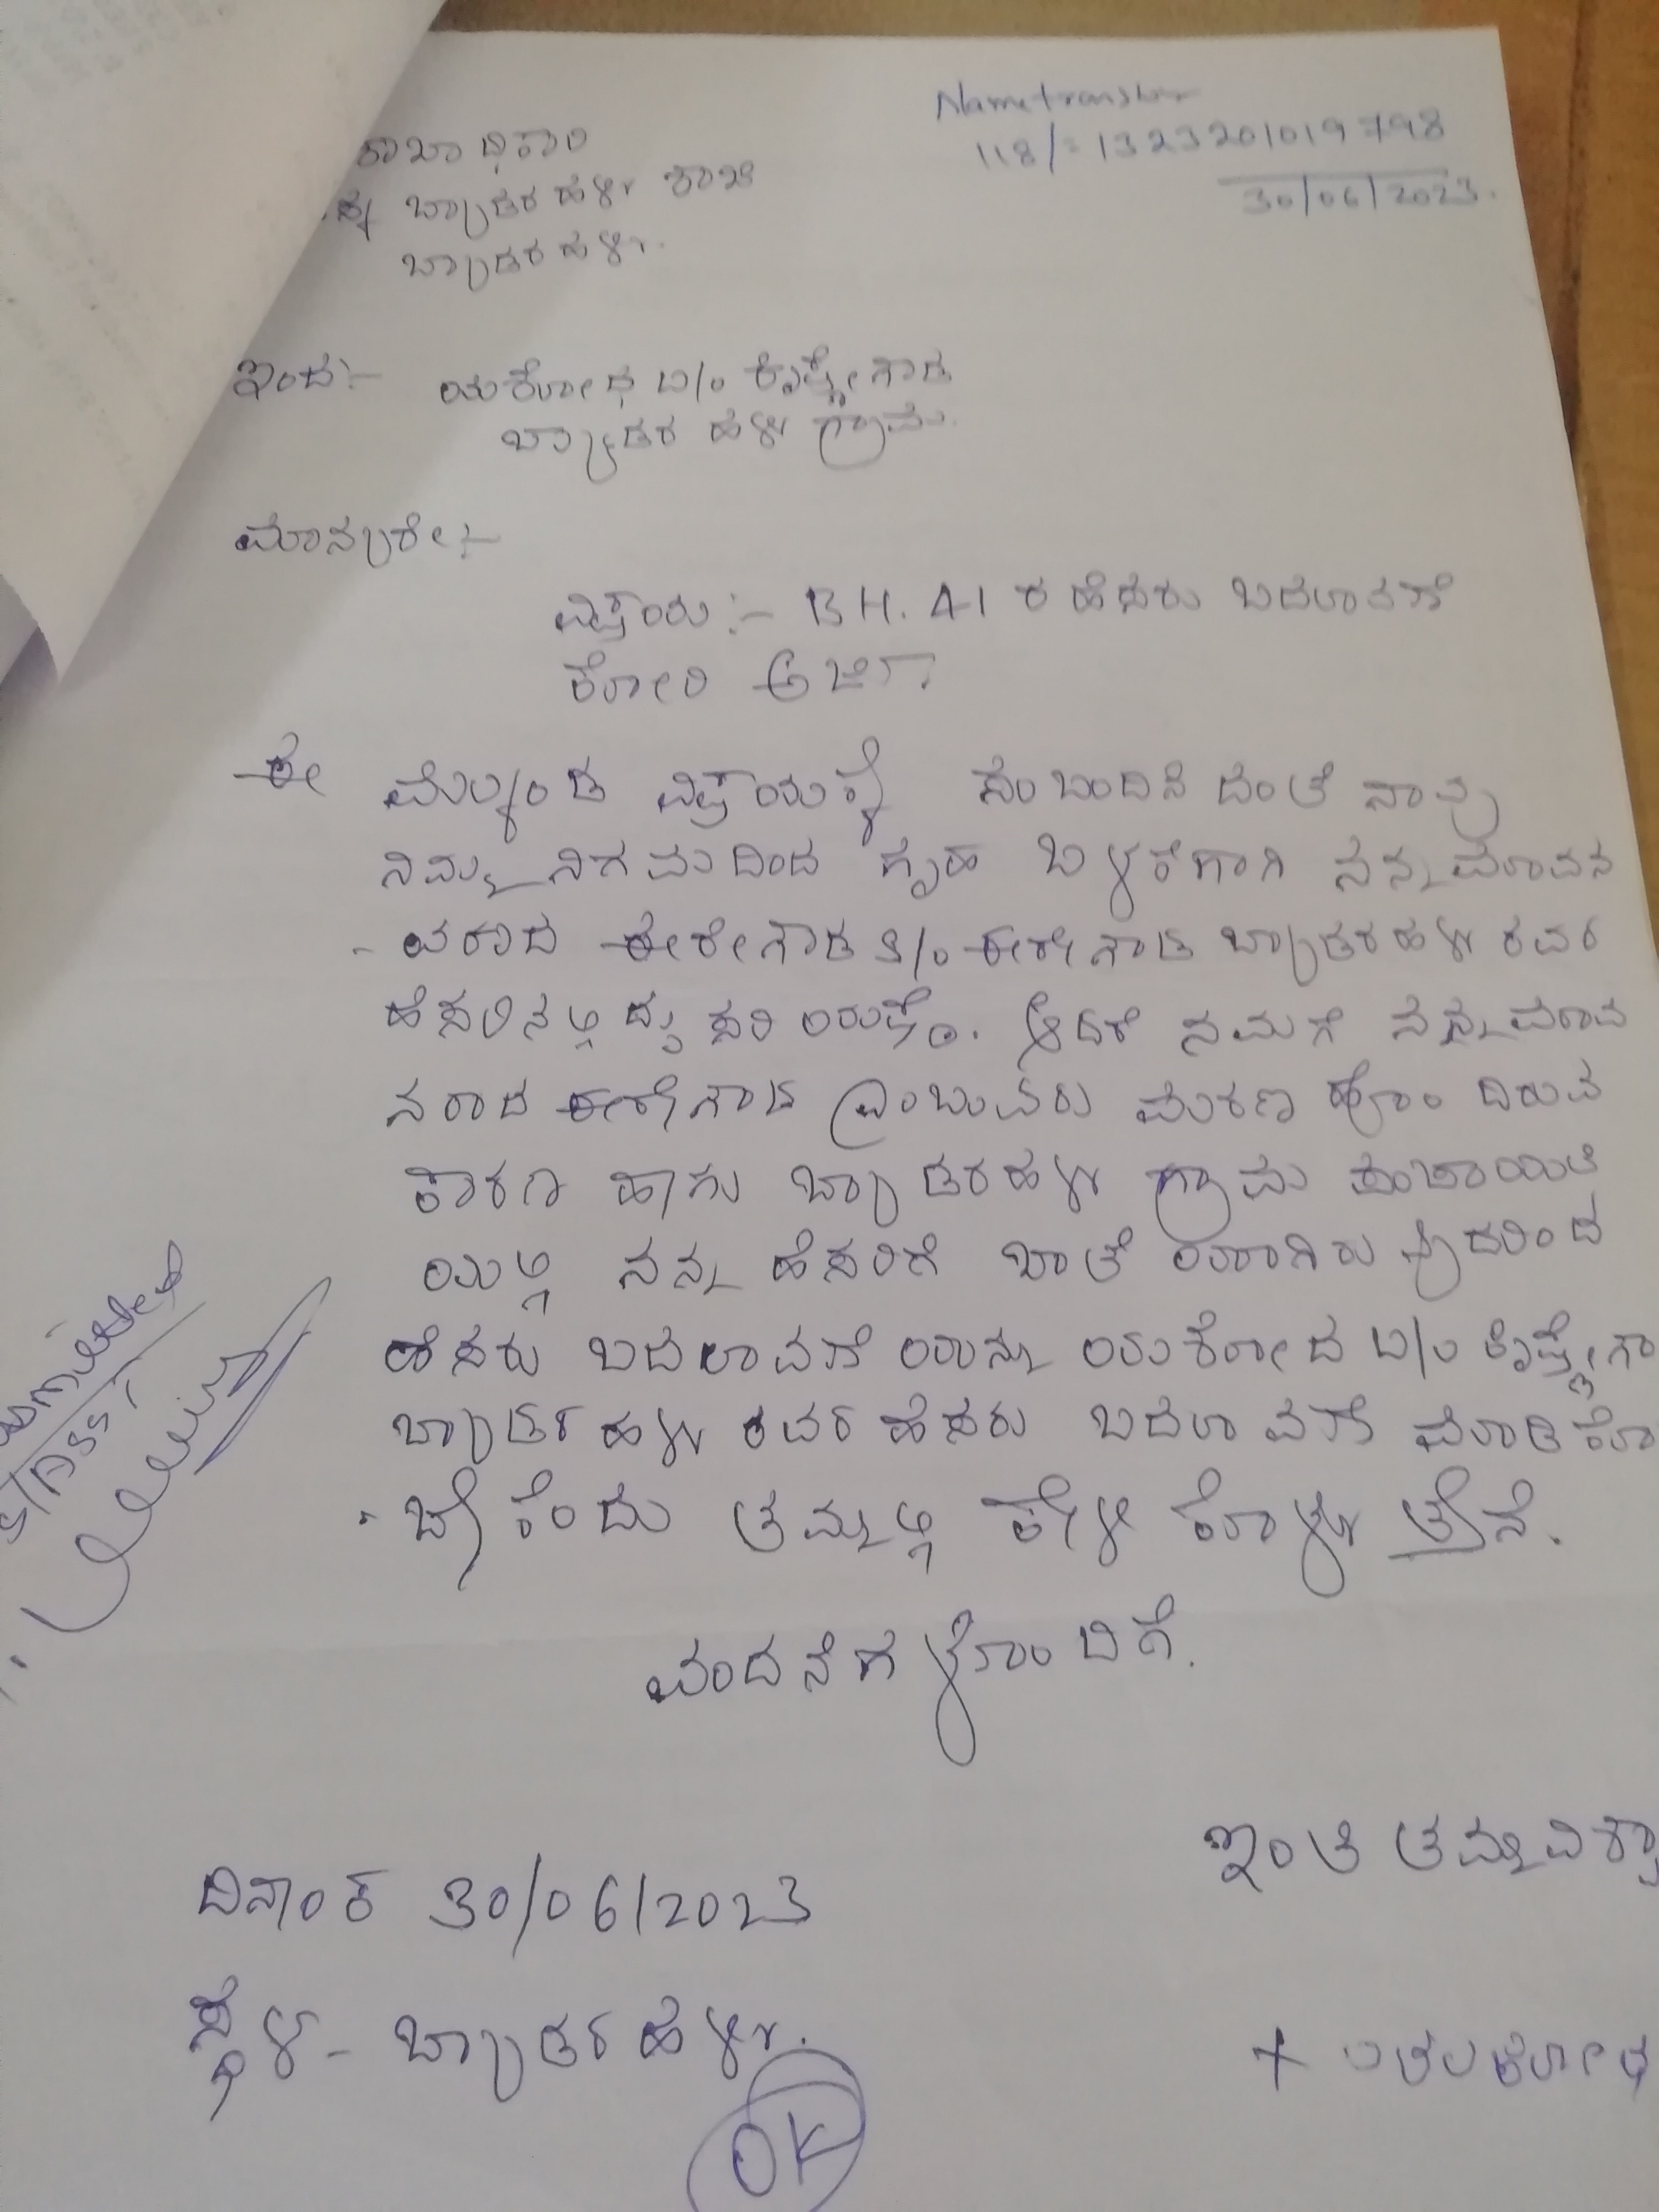 Name transfer
118/= 1323201019798
30/06/2023.
ಶಾಖಾಧಿಕಾರಿ
ಬ್ಯಾಡರಹಳ್ಳಿ ಶಾಖೆ
ಬ್ಯಾಡರಹಳ್ಳಿ.
ಇಂದ:- ಯಶೋಧ ಬಿ/o ಕೃಷ್ಣೇಗೌಡ
ಬ್ಯಾಡರಹಳ್ಳಿ ಗ್ರಾಮ.
ಮಾನ್ಯರೇ:-
ವಿಷಯ:- BH. 41 ರ ಹೆಸರು ಬದಲಾವಣೆ
ಕೋರಿ ಅರ್ಜಿ.
ಈ ಮೇಲ್ಕಂಡ ವಿಷಯಕ್ಕೆ ಸಂಬಂದಿಸಿದಂತೆ ನಾವು
ನಿಮ್ಮ ನಿಗಮದಿಂದ ಗೃಹ ಬಳ್ಕೆಗಾಗಿ ನನ್ನ ಮಾವನ
ವರಾದ ಈರೇಗೌಡ S/o ಈರೇಗೌಡ ಬ್ಯಾಡರಹಳ್ಳಿ ರವರ
ಹೆಸರಿನಲ್ಲಿದ್ದು ಸರಿಯಷ್ಟೆ. ಆದರೆ ನಮಗೆ ನನ್ನ ಮಾವ
ನರಾದ ಈರೇಗೌಡ ಎಂಬುವರು ಮರಣ ಹೊಂದಿರುವ
ಕಾರಣ ಹಾಗು ಬ್ಯಾಡರಹಳ್ಳಿ ಗ್ರಾಮ ಪಂಚಾಯಿತಿ
ಯಲ್ಲಿ ನನ್ನ ಹೆಸರಿಗೆ ಖಾತೆ ಯಾಗಿರುವುದರಿಂದ
ಹೆಸರು ಬದಲಾವಣೆಯನ್ನು ಯಶೋದ ಬಿ/o ಕೃಷ್ಣೇಗೌ
ಬ್ಯಾಡರಹಳ್ಳಿ ರವರ ಹೆಸರು ಬದಲಾವಣೆ ಮಾಡಿ ಕೊ
ಬೇಕೆಂದು ತಮ್ಮಲ್ಲಿ ಕೇಳಿ ಕೊಳ್ಳುತ್ತೇನೆ.
ವಂದನೆಗಳೊಂದಿಗೆ.
ಇಂತಿ ತಮ್ಮ ವಿಶ್ವಾ
ದಿನಾಂಕ 30/06/2023
ಸ್ಥಳ - ಬ್ಯಾಡರಹಳ್ಳಿ.
+ ಯಶೋಧ
OK